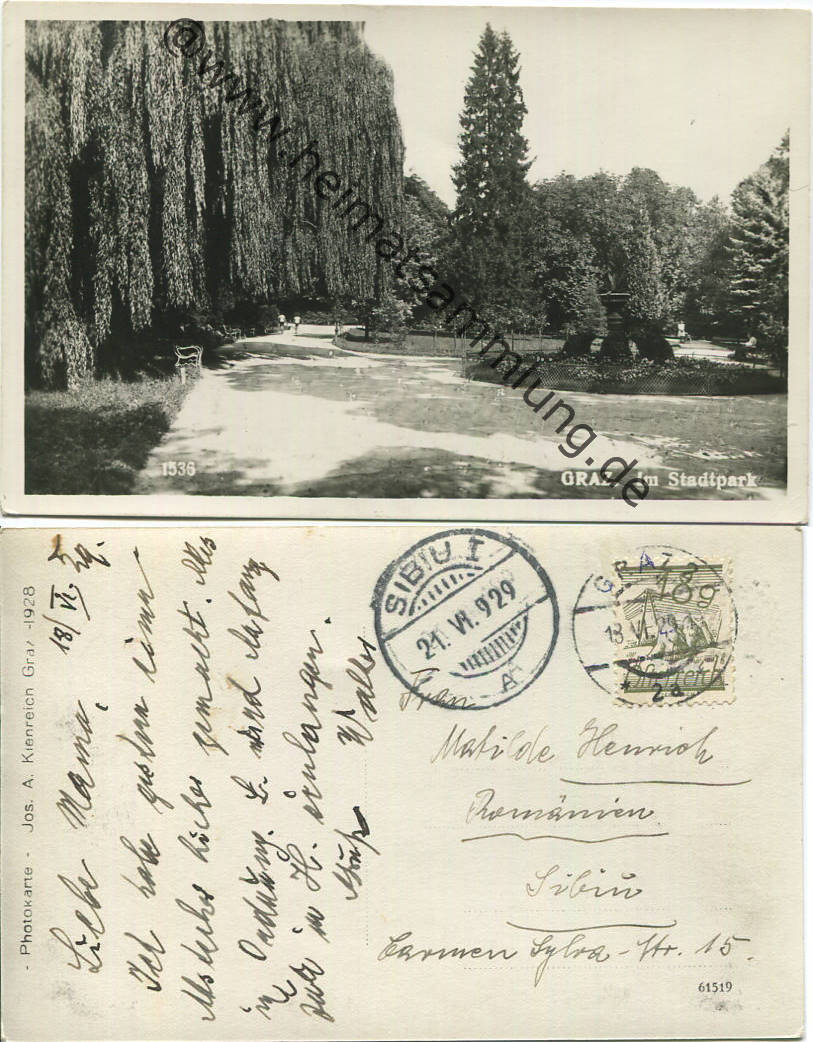 @www.heimatsammlung.de
1536
GRAZ, im Stadtpark
- Photokarte - Jos. A. Kienreich Graz -1928
18/VI. 29.
Liebe Mama.
Ich habe gestern eine
gemacht. Alles
in Ordnung. L. wird Anfang
Juli in H. einlangen.
Gruß Walter
SIBIU I
21. VI. 929
GRAZ 2
18. VI. 29
* 2a
18g
Österreich
Frau
Matilde Henrich
Romänien
Sibiu
Carmen Sylva-Str. 15.
61519